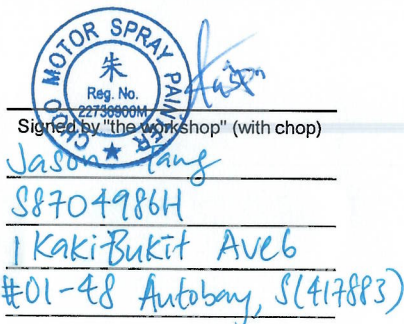 CHOO MOTOR SPRAY PAINTER
朱
Reg. No.
22736900M
Signed by "the workshop" (with chop)
Jason Yang
S8704986H
1 Kaki Bukit Ave 6
#01-48 Autobay, S(417883)